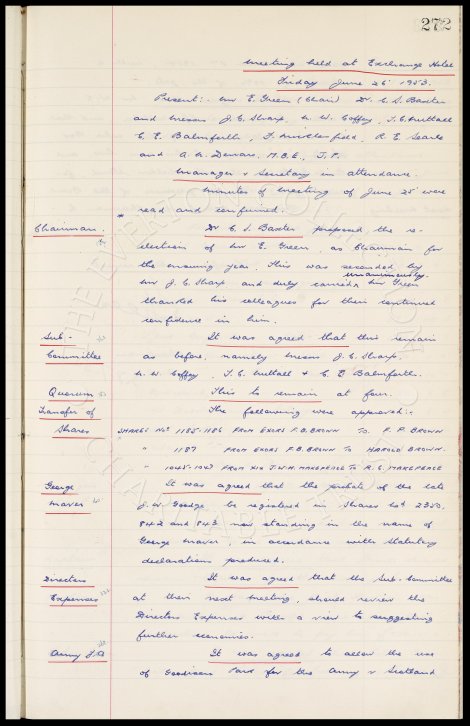 272
Meeting held at Exchange Hotel
Friday June 26' 1953.
Present:- Mr E. Green (Chair) Dr. C. S. Baxter
and Messrs J. C. Sharp, W. W. Coffey, J. C. Nuttall
C. E. Balmforth, F. Micklesfield, R. E. Searle
and A. W. Denaro, M.B.E., J.P.
Manager & Secretary in attendance.
Minutes of Meeting of June 25' were
read and confirmed.
Chairman. Dr C. S. Baxter proposed the re-
election of Mr E. Green, as Chairman for
the ensuing year. This was seconded by
unanimously.
Mr J. C. Sharp and duly carried Mr Green
thanked his colleagues for their continued
confidence in him.
Sub.- It was agreed that this remain
Committee as before, namely Messrs J. C. Sharp.
W. W. Coffey, J. C. Nuttall & C. E. Balmforth.
Quorum This to remain at four.
Transfer of The following were approved:-
Shares SHARES Nos 1185-1186 FROM EXORS F.B. BROWN TO F. P. BROWN
" 1187 FROM EXORS F.B. BROWN TO HAROLD BROWN.
" 1045-1047 FROM J.W.H. MAKEPEACE TO R. G. MAKEPEACE
George It was agreed that the probate of the late
Maver J. W. be registered in Shares Nos 2350.
842 and 843 now standing in the name of
George Maver in accordance with Statutory
declaration produced.
Directors It was agreed that the Sub-Committee
Expenses at their next Meeting, should review the
Directors Expenses with a view to suggesting
further economies.
Army F.A It was agreed to allow the use
of Goodison Park for the Army v Scotland
THE EVERTON COLLECTION
CHARITABLE TRUST